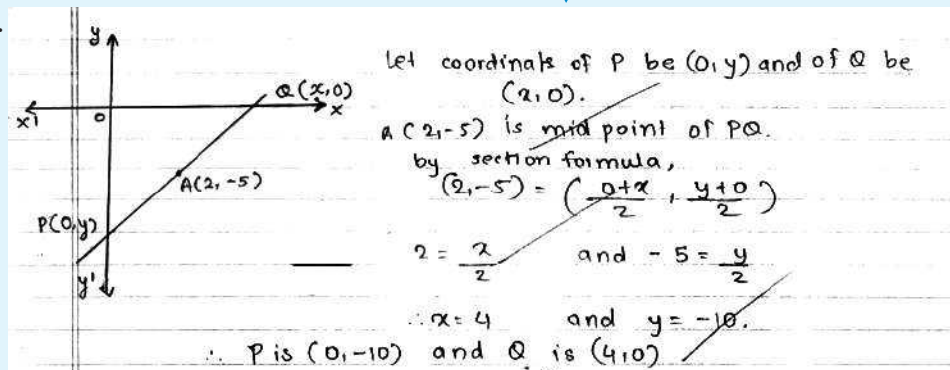 y
Q(x,0)
x' o x
A(2,-5)
P(0,y)
y'
Let coordinats of P be (0,y) and of Q be
(x,0).
A (2,-5) is mid point of PQ.
by section formula,
(2,-5) = ( 0+x/2 , y+0/2 )
2 = x/2 and -5 = y/2
∴ x = 4 and y = -10.
∴ P is (0,-10) and Q is (4,0)